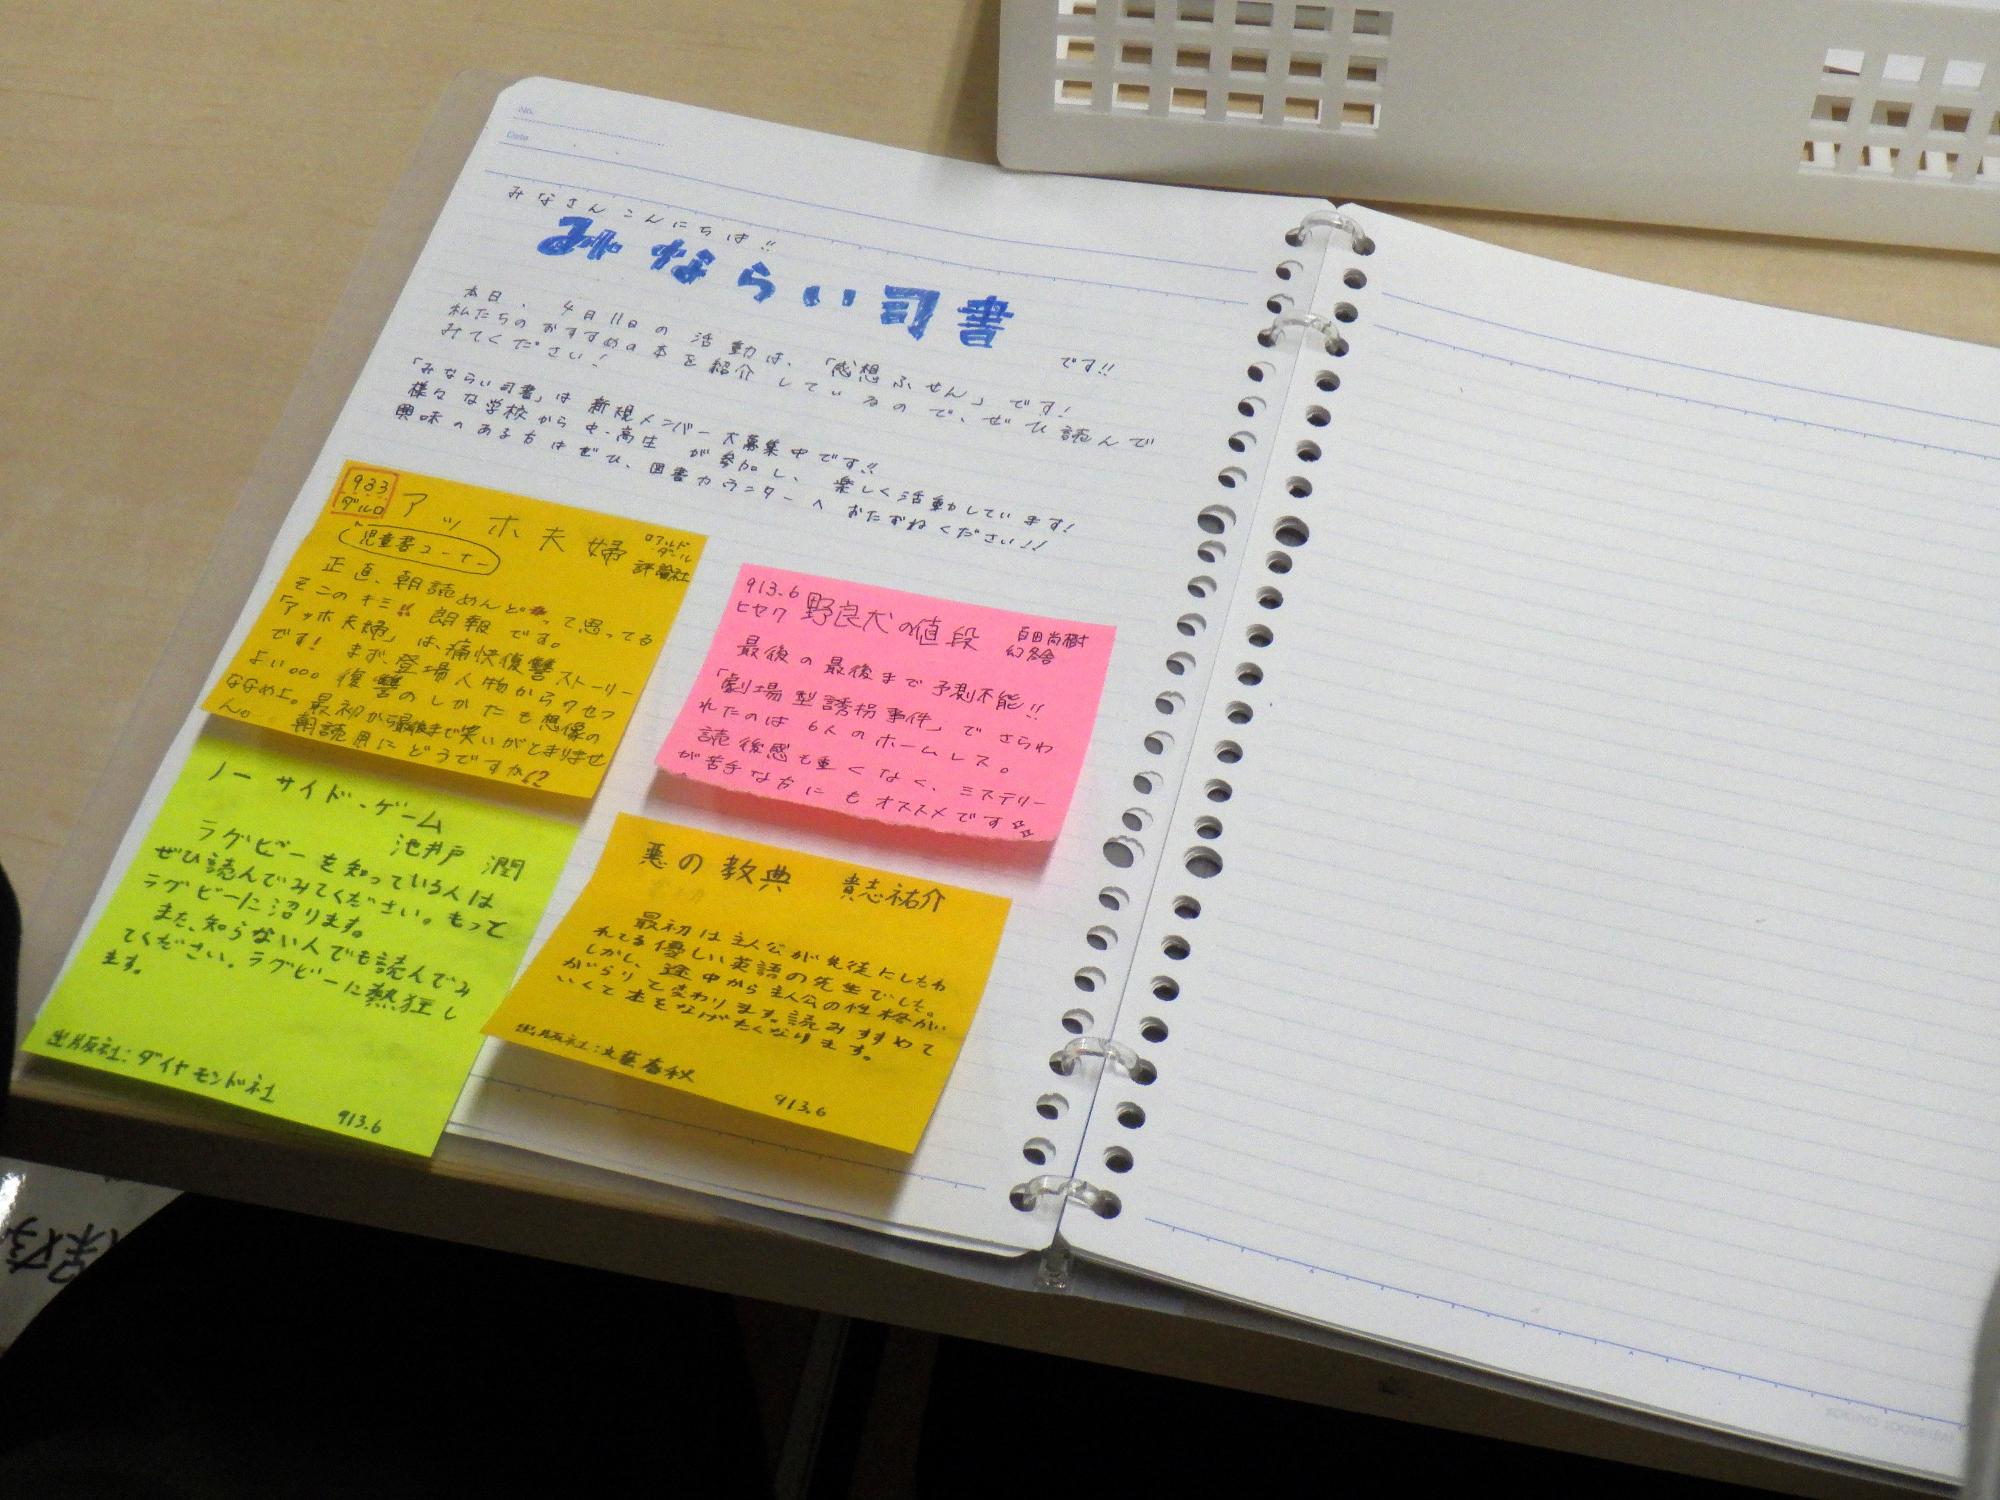 No.
Date
みなさんこんにちは!!
みならい司書
です!!
本日、4月11日の活動は、「感想ふせん」です!
私たちのおすすめの本を紹介しているので、ぜひ読んで
みてください!
「みならい司書」は新規メンバー大募集中です!!
様々な学校から中、高生が参加し、楽しく活動しています!
興味のある方はぜひ、図書カウンターへおたずねください!!
933
ダルロ
アッホ夫婦
ロアルド
ダール
評論社
児童書コーナー
正直、朝読めんどーって思ってる
そこのキミ!! 朗報です。
「アッホ夫婦」は、痛快復讐ストーリー
です! まず、登場人物からクセつ
よい。。。復讐のしかたも想像の
ななめ上。最初から最後まで笑いがとまりませ
ん。 朝読用にどうですか!?
913.6
ヒヤク
野良犬の値段
百田尚樹
幻冬舎
最後の最後まで予測不能!!
「劇場型誘拐事件」でさらわ
れたのは6人のホームレス。
読後感も重くなく、ミステリー
が苦手な方にもオススメです☆
ノーサイド・ゲーム
池井戸 潤
ラグビーを知っている人は
ぜひ読んでみてください。もって
ラグビーに沼ります。
また、知らない人でも読んでみ
てください。ラグビーに熱狂し
ます。
出版社:ダイヤモンド社
913.6
悪の教典 貴志祐介
最初は主人公が生徒にしたわ
れてる優しい英語の先生でした。
しかし、途中から主人公の性格が
がらりて変わります。読みすすめて
いくて本をなげたくなります。
出版社:文藝春秋
913.6